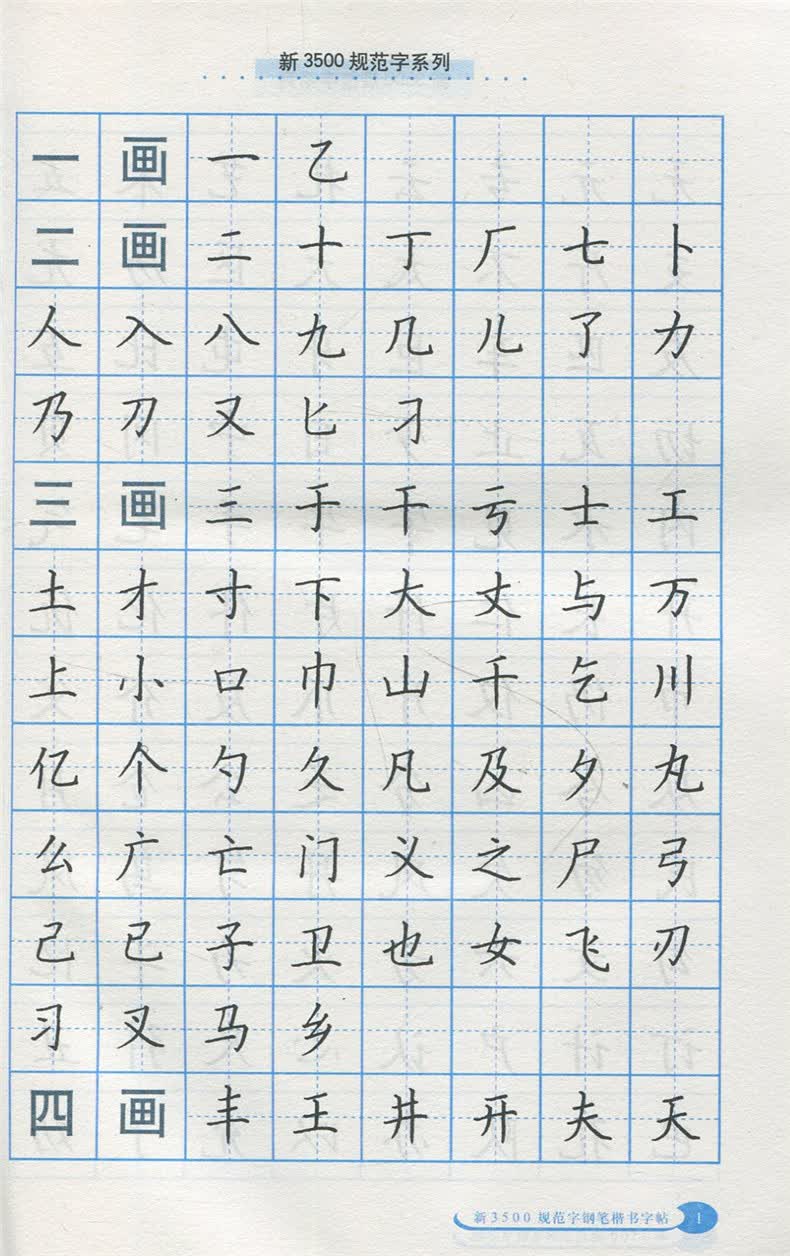 新3500规范字系列
一画一乙
二画二十丁厂七卜
人入八九几儿了力
乃刀又匕刁
三画三于干亏士工
土才寸下大丈与万
上小口巾山千乞川
亿个勺久凡及夕丸
么广亡门义之尸弓
己已子卫也女飞刃
习叉马乡
四画丰王井开夫天
新3500规范字钢笔楷书字帖 1